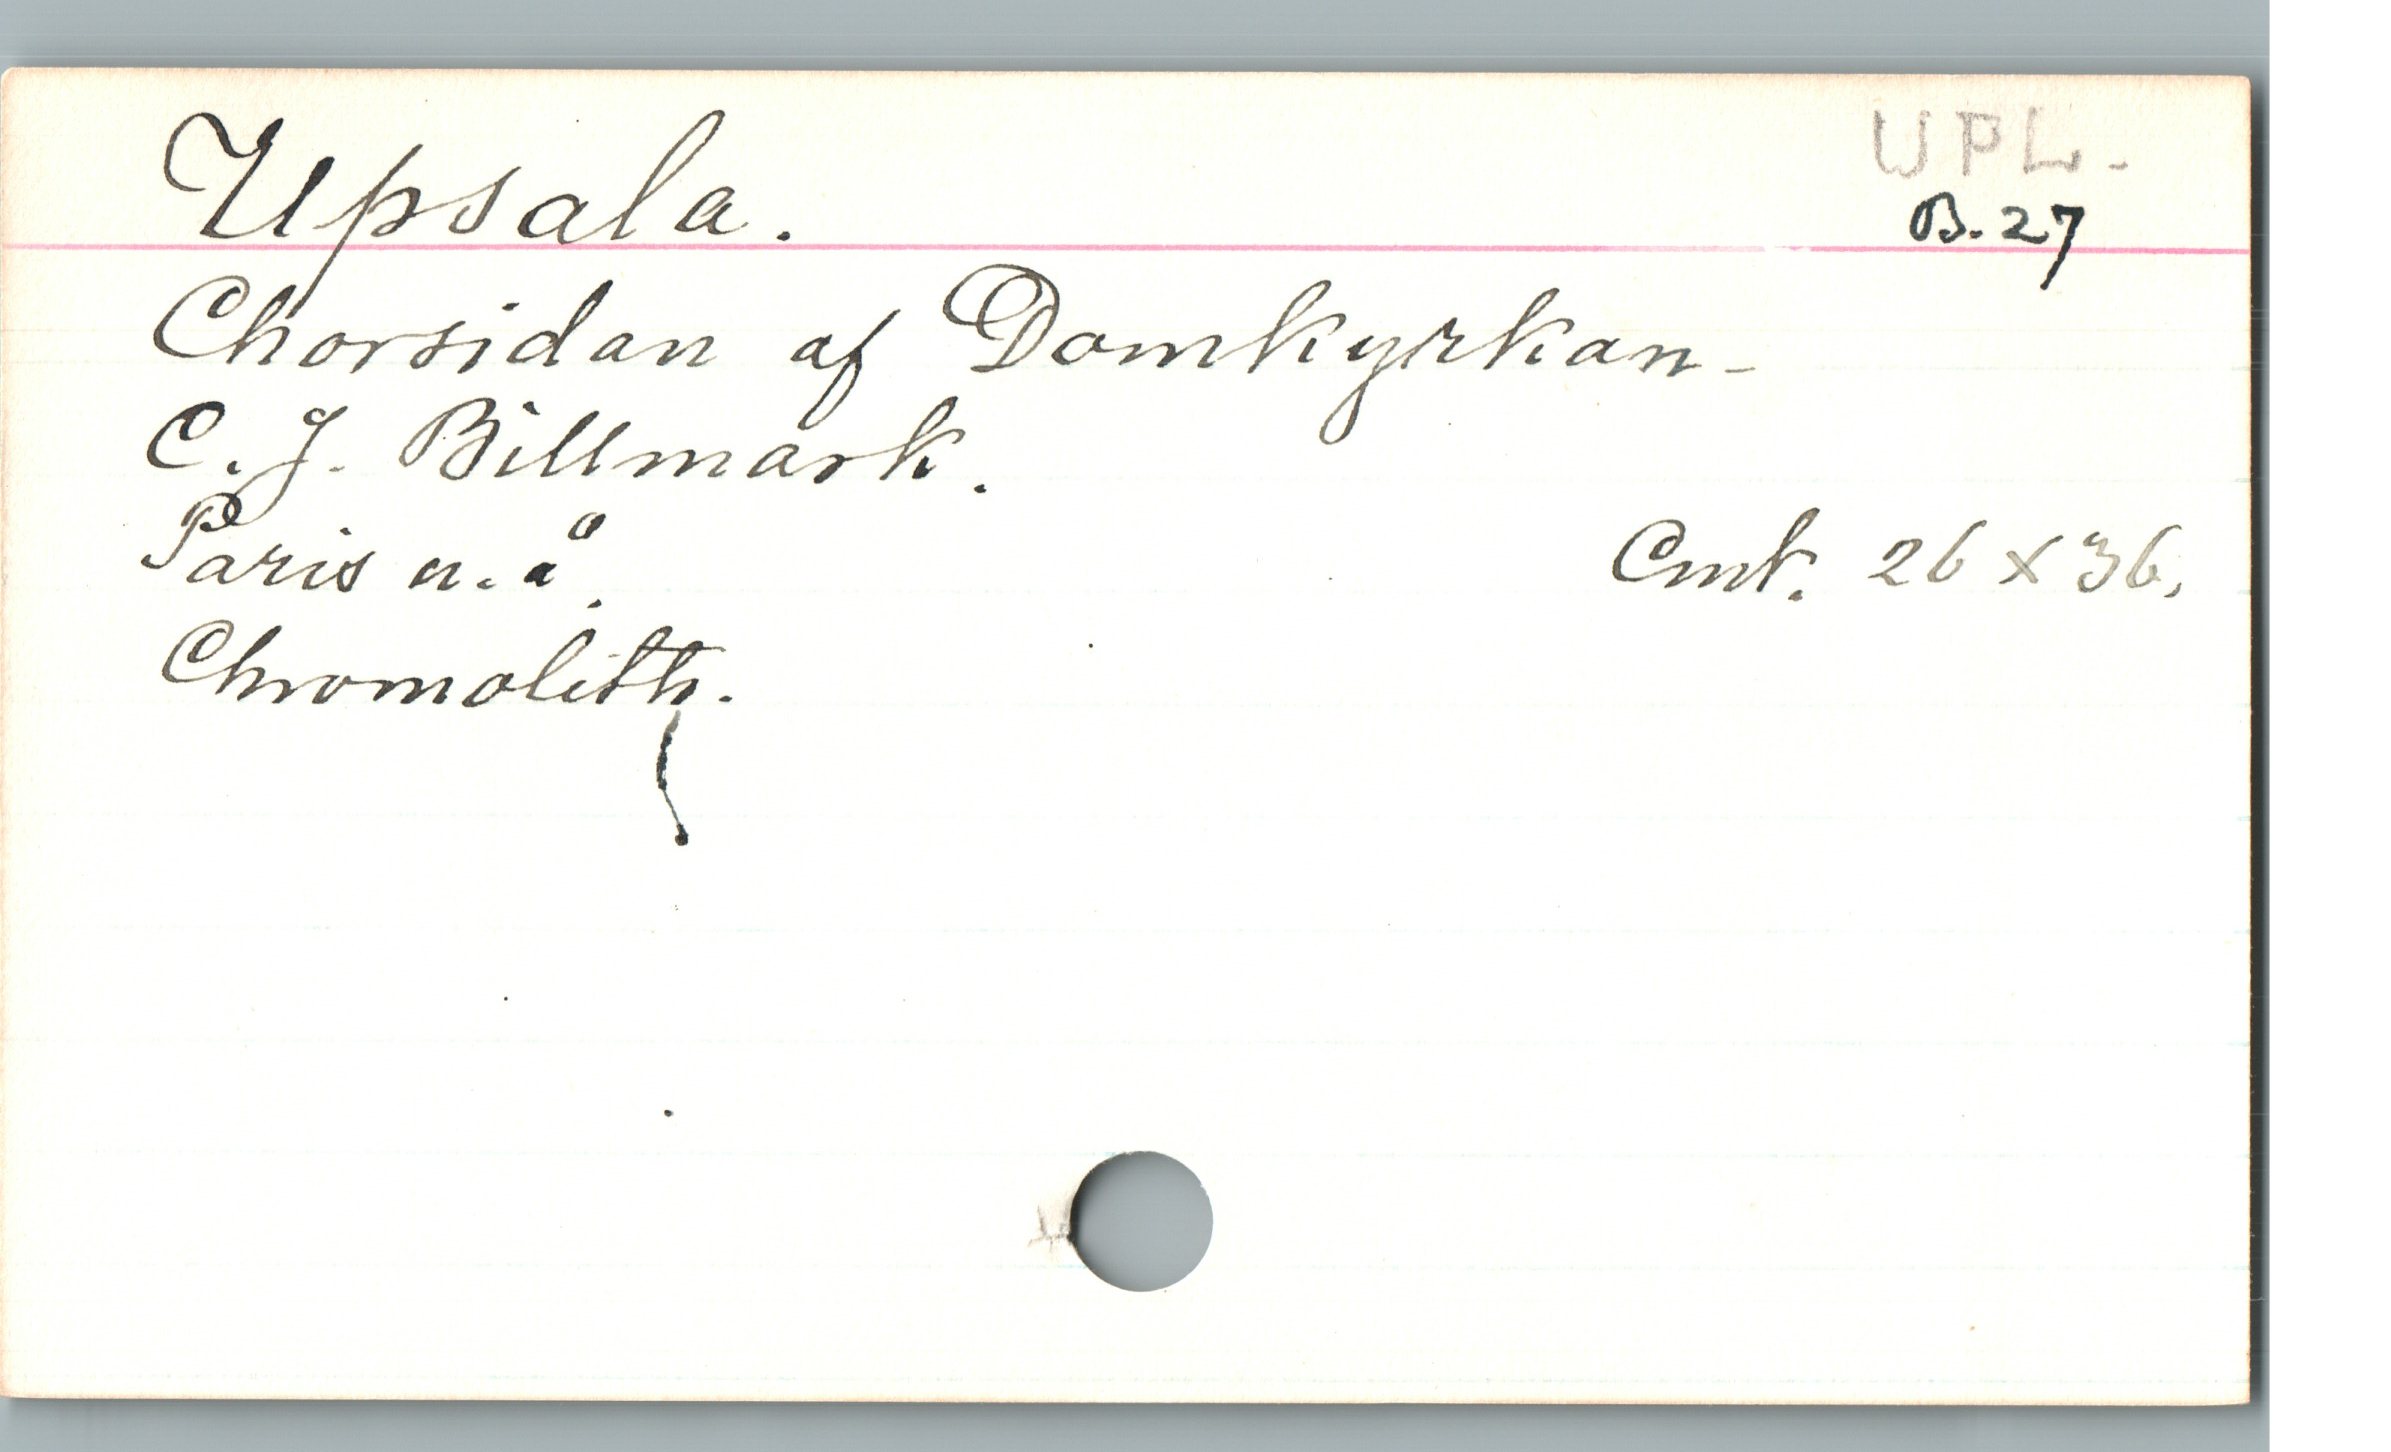 Upsala.
UPL-
B. 27
Chorsidan af Domkyrkan-
C. J. Billmark.
Paris u. å.
Cmt. 26 x 36.
Chromolith.